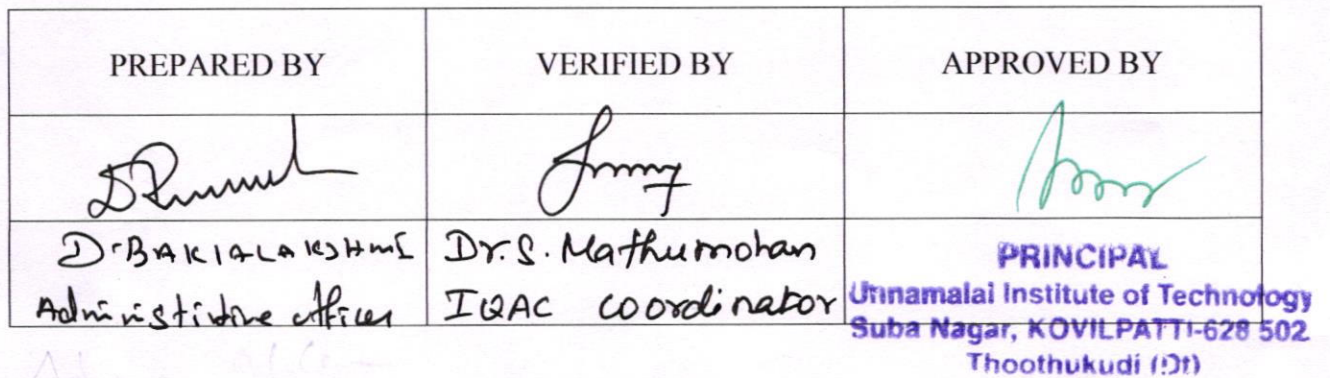 PREPARED BY
VERIFIED BY
APPROVED BY
D. BAKIALAKSHMI
Administirtive officer
Dr. S. Mathumohan
IQAC coordinator
PRINCIPAL
Unnamalai Institute of Technology
Suba Nagar, KOVILPATTI-628 502
Thoothukudi (Dt)